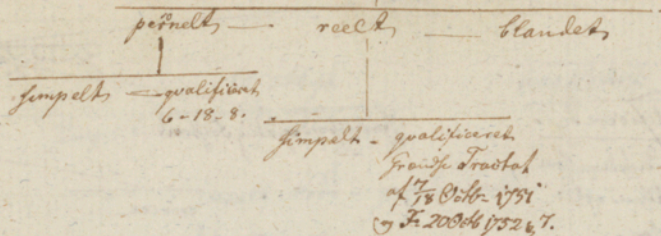 persnelt — reelt — blandet
simpelt — qvalificeret
6-18-8.
simpelt - qvalificeret
Tractat
af 7/18 Octb. 1751
og F. 20 Octb 1752 § 7.